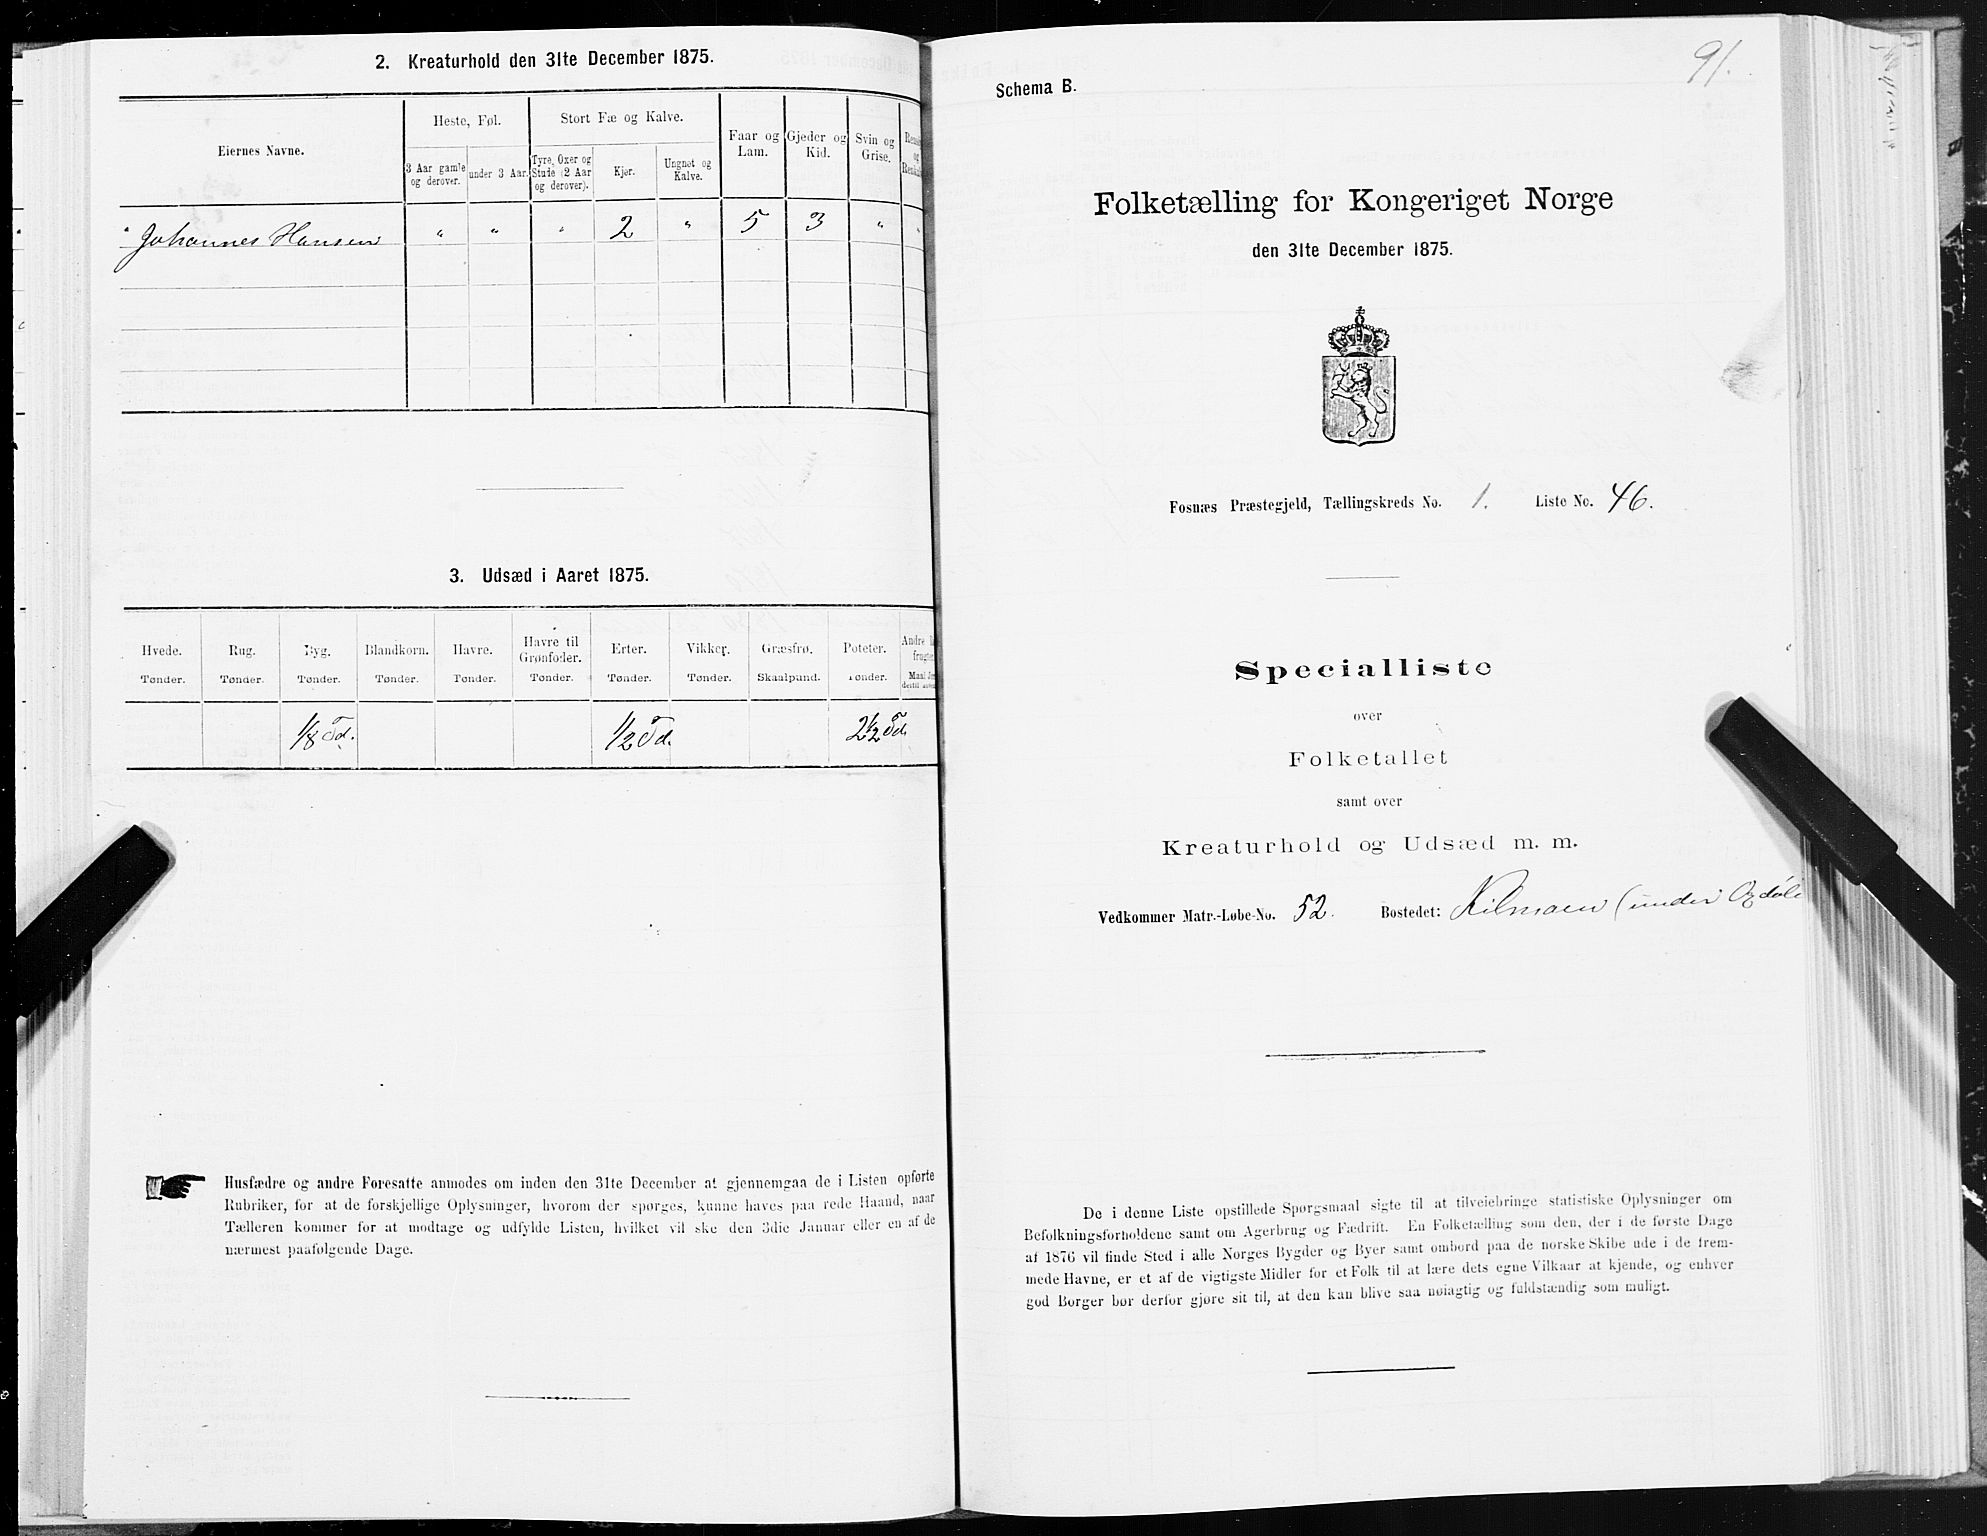 2. Kreaturhold den 31te December 1875.
Eiernes Navne.
Heste, Føl.
Stort Fæ og Kalve.
Faar og Lam.
Gjeder og Kid.
Svin og Grise.
3 Aar gamle og derover.
under 3 Aar.
Tyre, Oxer og Stude (2 Aar og derover).
Kjør.
Ungnøt og Kalve.
" Johannes Hansen " " " 2 " 5 3 " "
3. Udsæd i Aaret 1875.
Hvede. Rug. Byg. Blandkorn. Havre. Havre til Grønfoder. Erter. Vikker. Græsfrø. Poteter.
Tønder. Tønder. Tønder. Tønder. Tønder. Tønder. Tønder. Tønder. Skaalpund. Tønder.
1/8 Td. 1/2 Td. 2 1/2 Td.
Husfædre og andre Foresatte anmodes om inden den 31te December at gjennemgaa de i Listen opførte
Rubriker, for at de forskjellige Oplysninger, hvorom der spørges, kunne haves paa rede Haand, naar
Tælleren kommer for at modtage og udfylde Listen, hvilket vil ske den 3die Januar eller en af de
nærmest paafølgende Dage.
91.
Schema B.
Folketælling for Kongeriget Norge
den 31te December 1875.
Fosnæs Præstegjeld, Tællingskreds No. 1. Liste No. 46.
Specialliste
over
Folketallet
samt over
Kreaturhold og Udsæd m. m.
Vedkommer Matr.-Løbe-No. 52. Bostedet: Kilmoen (under
De i denne Liste opstillede Spørgsmaal sigte til at tilveiebringe statistiske Oplysninger om
Befolkningsforholdene samt om Agerbrug og Fædrift. En Folketælling som den, der i de første Dage
af 1876 vil finde Sted i alle Norges Bygder og Byer samt ombord paa de norske Skibe ude i de frem-
mede Havne, er et af de vigtigste Midler for et Folk til at lære dets egne Vilkaar at kjende, og enhver
god Borger bør derfor gjøre sit til, at den kan blive saa nøiagtig og fuldstændig som muligt.